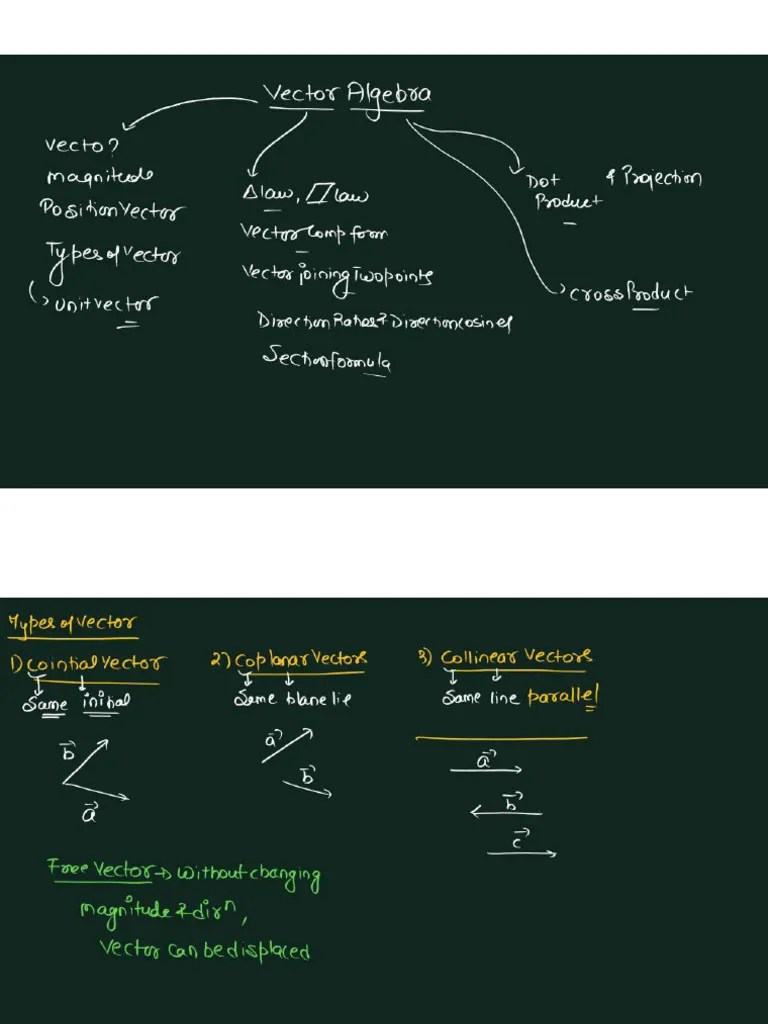 Vector Algebra
Vecto?
magnitude
Position Vector
Types of Vector
Unit vector
Δ law, ▱ law
Vector Comp form
Vector joining Two points
Direction Ratios & Direction cosines
Section formula
Dot & Projection
Product
Cross Product
Types of Vector
1) Cointial Vector
Same initial
b⃗
a⃗
2) Coplanar Vectors
Same plane lie
a⃗
b⃗
3) Collinear Vectors
Same line parallel
a⃗
b⃗
c⃗
Free Vector → Without changing
magnitude & dirⁿ,
Vector can be displaced